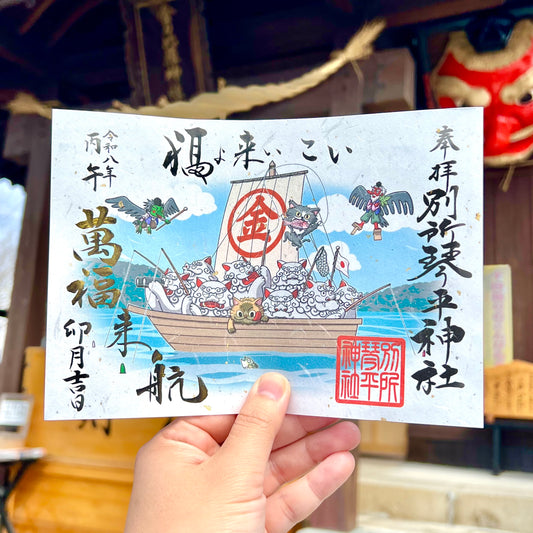 奉拝
別所琴平神社
福よ来いこいこい
令和八年
丙午
萬福来航
卯月吉日
金
別所
琴平
神社